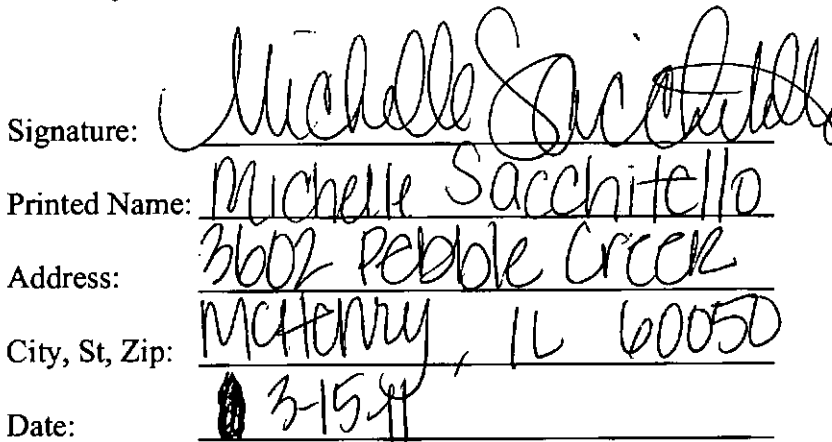 Signature: Michelle Sacchitello
Printed Name: Michelle Sacchitello
Address: 3602 Pebble Creek
City, St, Zip: McHenry, IL 60050
Date: 3-15-11